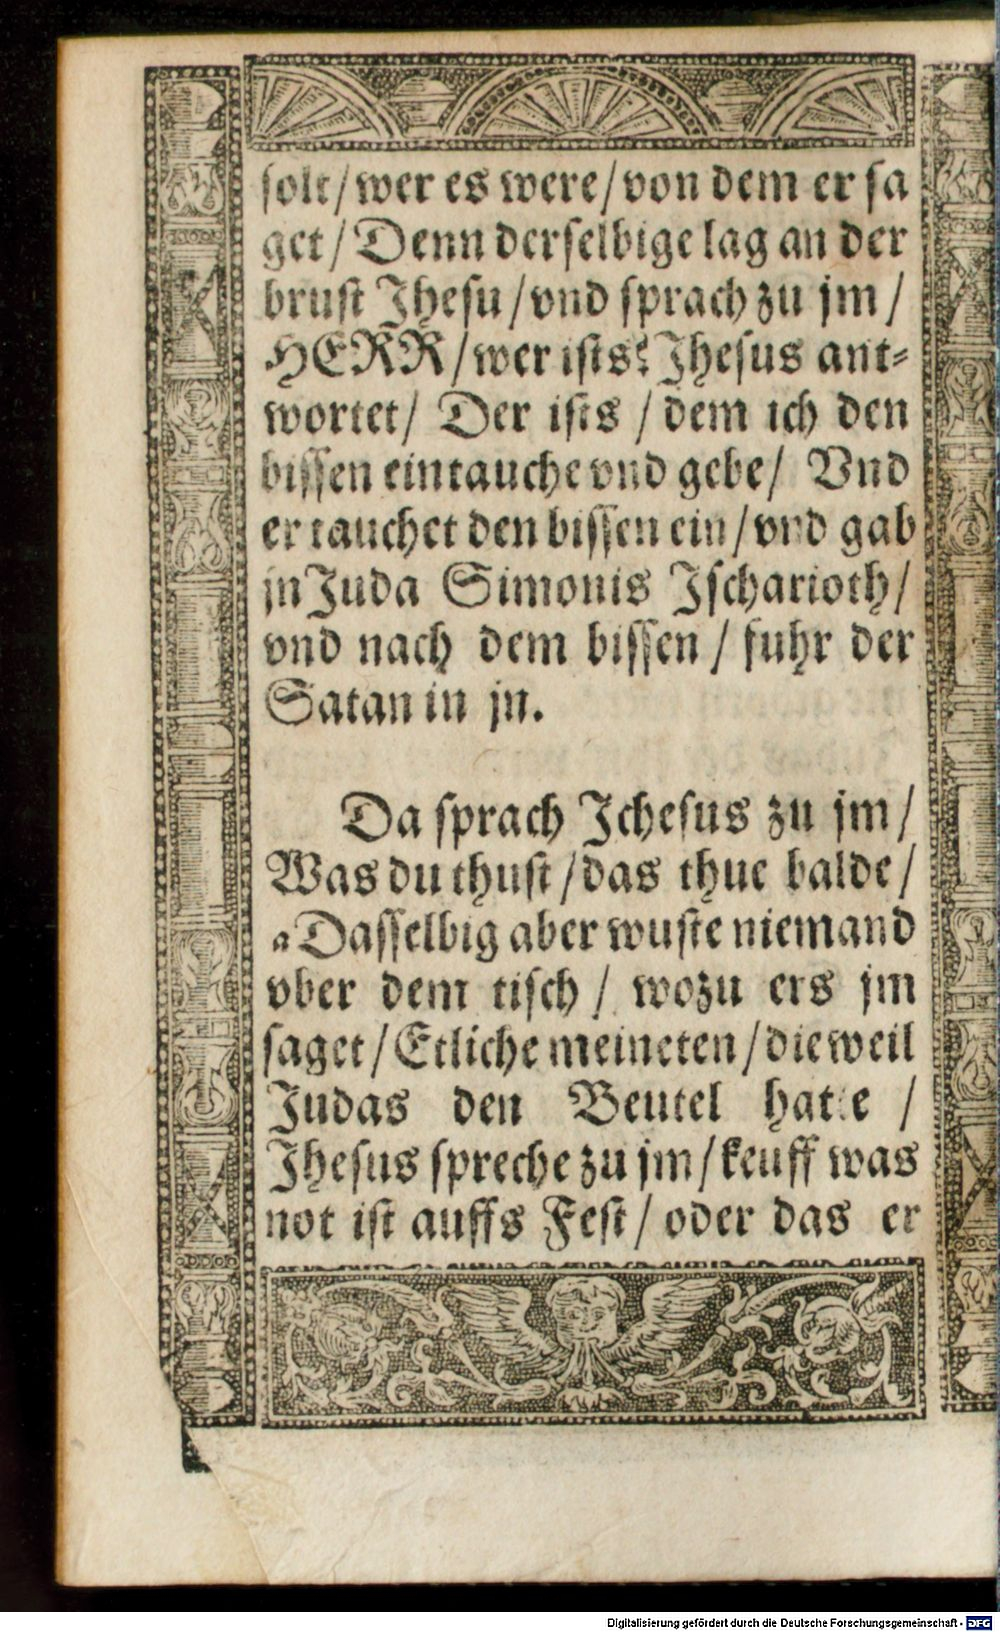 solt/ wer es were/ von dem er sa
get/ Denn derselbige lag an der
brust Jhesu/ vnd sprach zu jm/
HERR/ wer ists? Jhesus ant⸗
wortet/ Der ists / dem ich den
bissen eintauche vnd gebe/ Vnd
er tauchet den bissen ein/ vnd gab
jn Juda Simonis Jscharioth/
vnd nach dem bissen / fuhr der
Satan in jn.
Da sprach Jchesus zu jm/
Was du thust/ das thue balde/
a Dasselbig aber wuste niemand
vber dem tisch / wozu ers jm
saget/ Etliche meineten/ dieweil
Judas den Beutel hatte /
Jhesus spreche zu jm/ keuff was
not ist auffs Fest/ oder das er
Digitalisierung gefördert durch die Deutsche Forschungsgemeinschaft - DFG